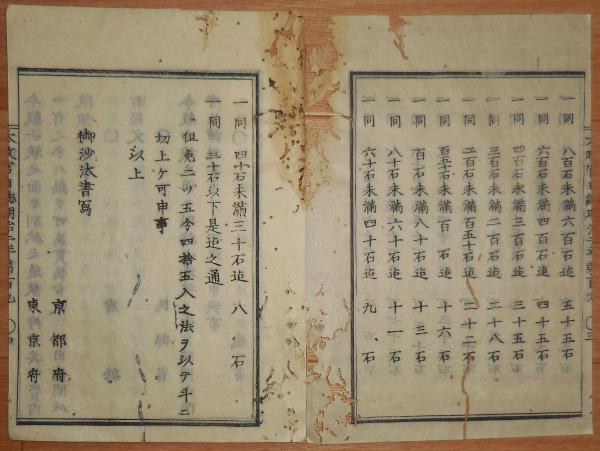 一同 八百石未満六百石迄 五十五石
一同 六百石未満四百石迄 四十五石
一同 四百石未満三百石迄 三十五石
一同 三百石未満二百石迄 二十八石
一同 二百石未満百五十石迄 二十二石
一同 百五十石未満百石迄 十六石
一同 百石未満八十石迄 十三石
一同 八十石未満六十石迄 十一石
一同 六十石未満四十石迄 九石
一同 四十石未満三十石迄 八石
一同 三十石以下是迄之通
一但免二ツ五分四捨五入之法ヲ以テ斗ニ
切上ケ可申事
以上
御沙汰書写
京都府
東京府
太政官日誌明治二年第百九 〇四